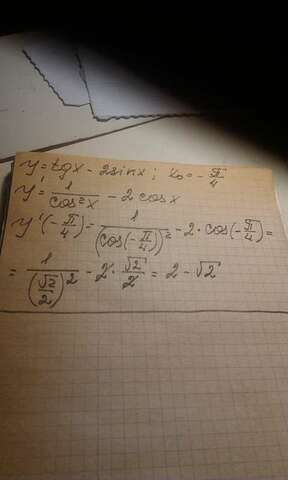 y = tgx - 2sinx; x₀ = -π/4
y' = 1/cos²x - 2cosx
y'(-π/4) = 1/(cos(-π/4))² - 2·cos(-π/4) =
= 1/(√2/2)² - 2·√2/2 = 2 - √2